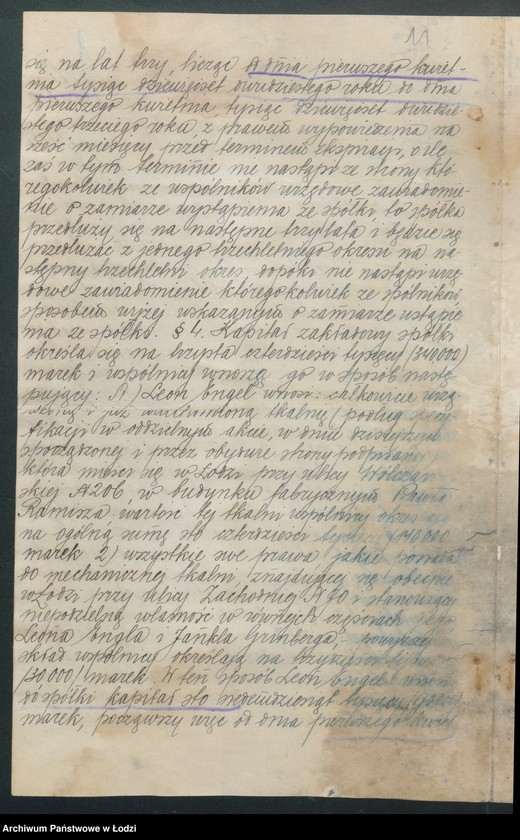 11
się na lat trzy, licząc od dnia pierwszego kwiet-
nia tysiąc dziewięćset dwudziestego roku do dnia
pierwszego kwietnia tysiąc dziewięćset dwudzie-
stego trzeciego roku, z prawem wypowiedzenia na
sześć miesięcy przed terminem ekspiracyi, o ile
zaś w tym terminie nie nastąpi ze strony któ-
regokolwiek ze wspólników urzędowe zawiadomie-
nie o zamiarze wystąpienia ze spółki, to spółka
przedłuży się na następne trzy lata i będzie się
przedłużać z jednego trzechletniego okresu na na-
stępny trzechletni okres, dopóki nie nastąpi urzę-
dowe zawiadomienie któregokolwiek ze spólników,
sposobem wyżej wskazanym o zamiarze ustąpie-
nia ze spółki. § 4. Kapitał zakładowy spółki
określa się na trzysta czterdzieści tysięcy /340000/
marek i wspólnicy wnoszą go w sposób nastę-
pujący: A) Leon Engel wnosi: całkowicie urzą-
dzoną i już uruchomioną tkalnię /podług specy-
fikacyi w oddzielnym akcie, w dniu dzisiejszym
sporządzonej i przez obydwie strony podpisanej
która mieści się w Łodzi przy ulicy Wólczań-
skiej № 206, w budynku fabrycznym
Ramisza wartość tej tkalni wspólnicy określają
na ogólną sumę sto czterdzieści tysięcy /140000
marek 2) wszystkie swe prawa jakie posiada
do mechanicznej tkalni, znajdującej się obecnie
w Łodzi przy ulicy Zachodniej № 70 i stanowiącej
niepodzielną własność w równych częściach jego
Leona Engla i Jankla Grinberga,
skład wspólnicy określają na trzydzieści tysięcy
/30000/ marek. W ten sposób Leon Engel wnosi
do spółki kapitał sto siedemdziesiąt tysięcy /170000/
marek, począwszy więc od dnia pierwszego kwiet-
Archiwum Państwowe w Łodzi